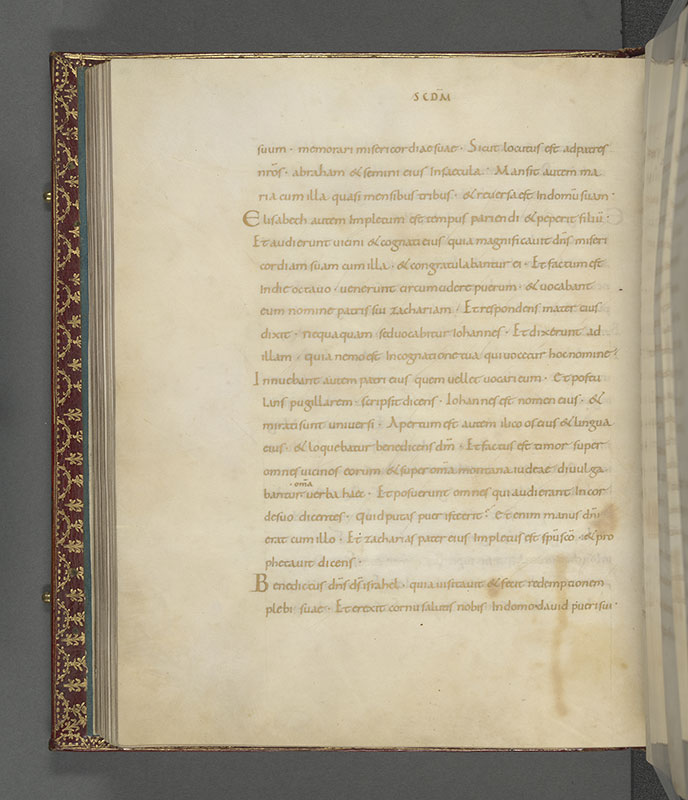 SCDM̄
suum · memorari misericordiae suae · Sicut locutus est ad patres
nr̄os · abraham & semini eius In saecula · Mansit autem ma
ria cum illa quasi mensibus tribus · & reuersa est In domū suam ·
Elisabeth autem Impletum est tempus pariendi & peperit filiū ·
Et audierunt uicini & cognati eius quia magnificauit dn̄s miseri
cordiam suam cum illa · & congratulabantur ei · Et factum est
In die octauo · uenerunt circumcidere puerum · & uocabant
eum nomine patris sui zachariam · Et respondens mater eius
dixit · nequaquam sed uocabitur Iohannes · Et dixerunt ad
illam · quia nemo est In cognatione tua qui uocetur hoc nomine
Innuebant autem patri eius quem uellet uocari eum · Et postu
lans pugillarem · scripsit dicens · Iohannes est nomen eius · &
mirati sunt uniuersi · Apertum est autem ilico os eius & lingua
eius · & loquebatur benedicens dm̄ · Et factus est timor super
omnes uicinos eorum & super om̄a montana iudeae diuulga
· om̄a
bantur uerba haec · Et posuerunt omnes qui audierant In cor
de suo dicentes · Quid putas puer iste erit? Et enim manus dn̄i
erat cum illo · Et zacharias pater eius Impletus est sp̄u sc̄o · & pro
phetauit dicens ·
Benedictus dn̄s ds̄ israhel · quia uisitauit & fecit redemptionem
plebi suae · Et erexit cornu salutis nobis In domo dauid pueri sui ·